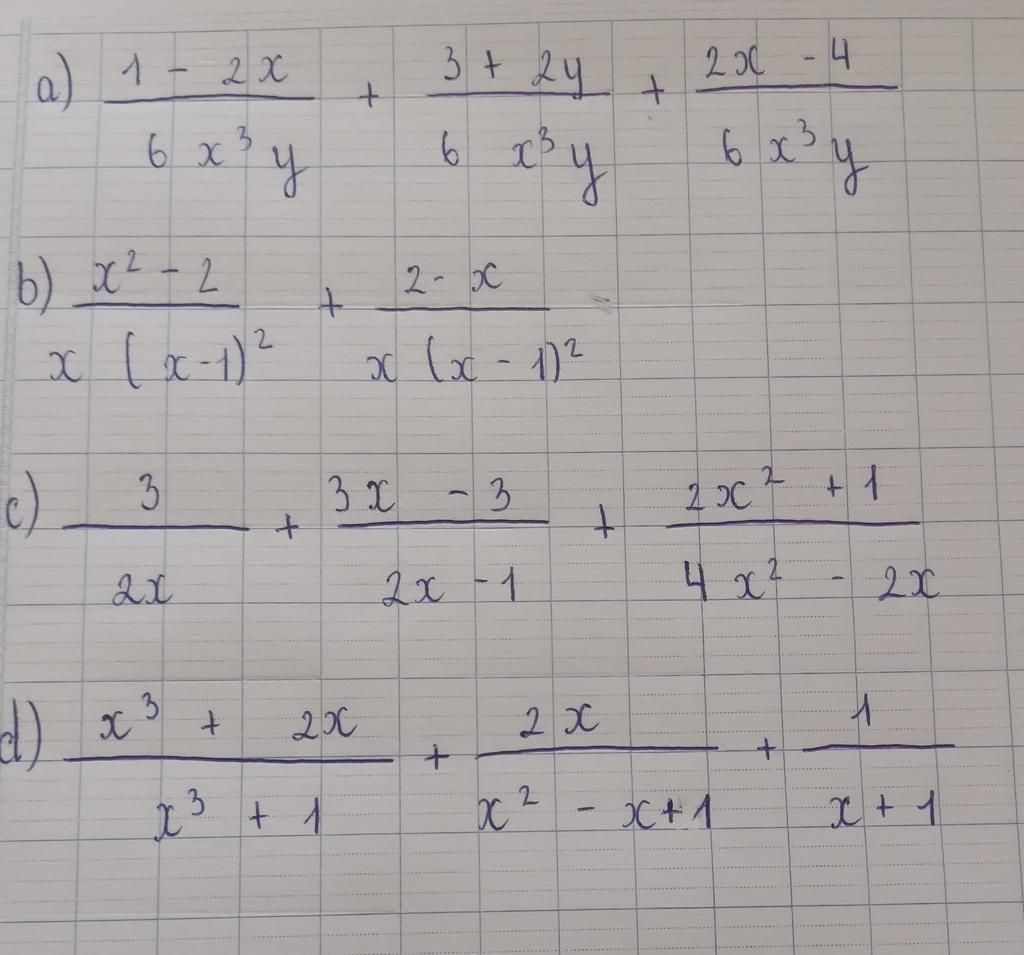 a) \frac{1 - 2x}{6x^3y} + \frac{3 + 2y}{6x^3y} + \frac{2x - 4}{6x^3y}
b) \frac{x^2 - 2}{x(x-1)^2} + \frac{2 - x}{x(x-1)^2}
c) \frac{3}{2x} + \frac{3x - 3}{2x - 1} + \frac{2x^2 + 1}{4x^2 - 2x}
d) \frac{x^3 + 2x}{x^3 + 1} + \frac{2x}{x^2 - x + 1} + \frac{1}{x + 1}